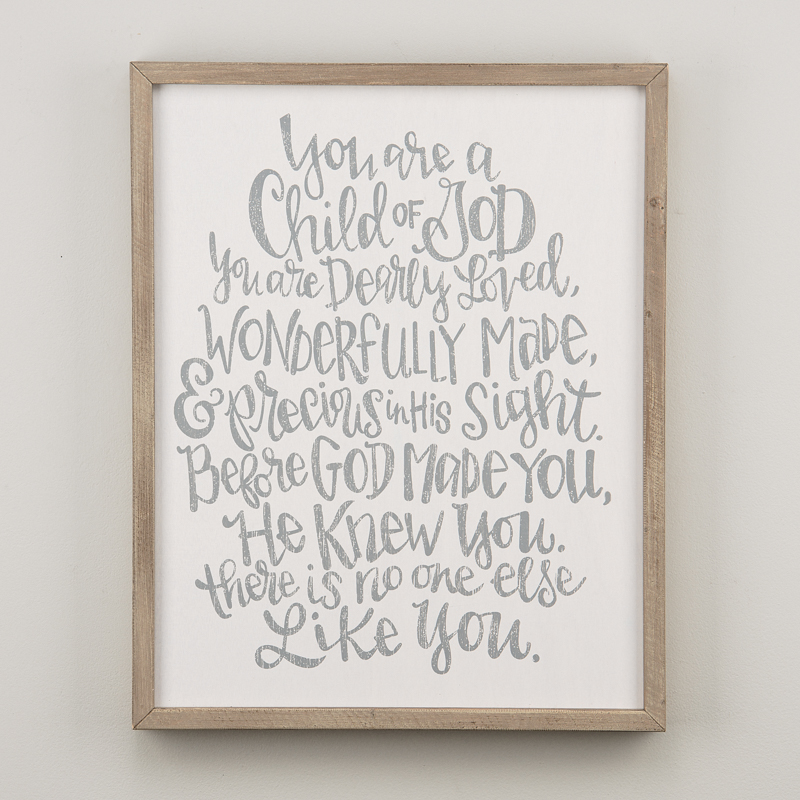 You are a
Child OF GOD
You are Dearly Loved,
WONDERFULLY MADE,
& precious in His Sight.
Before GOD MADE YOU,
He Knew You.
there is no one else
Like You.